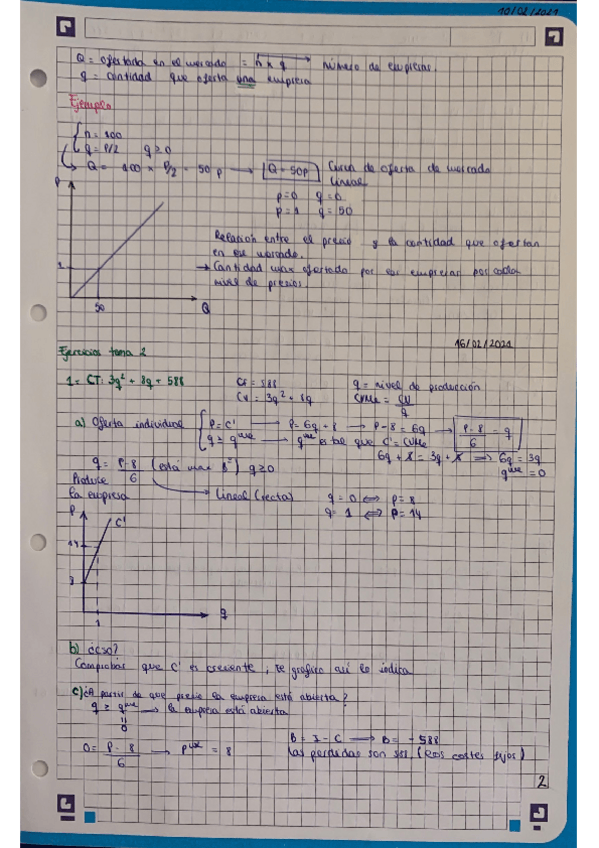 10/02/2021
Q = ofertada en el mercado = n x q número de empresas.
q = cantidad que oferta una empresa
Ejemplo
n = 100
q = P/2 q ≥ 0
Q = 100 × P/2 = 50p → Q = 50P Curva de oferta de mercado
lineal
p=0 q=0
p=1 q=50
P
Relación entre el precio y la cantidad que ofertan
en el mercado.
1
→ Cantidad max ofertada por las empresas por cada
nivel de precios.
50 Q
16/02/2021
Ejercicios tema 2
1 = CT: 3q² + 8q + 588 CF = 588 q = nivel de producción
CV = 3q² + 8q CVMe = CV/q
a) Oferta individual { P = C' → P = 6q + 8 → P - 8 = 6q → P-8/6 = q
q ≥ qᵘᵐᵉ → qᵘᵐᵉ es tal que C' = CVMe
6q + 8 = 3q + 8 ⟹ 6q = 3q
qᵘᵐᵉ = 0
q = P-8/6 (está max Bº) q ≥ 0
Produce
la empresa
→ Lineal (recta) q = 0 ⟺ p = 8
q = 1 ⟺ P = 14
P
C'
14
8
1
q
b) ¿CSO?
Comprobar que C' es creciente, la gráfica así lo indica
c) ¿A partir de que precio la empresa está abierta?
q ≥ qᵘᵐᵉ → la empresa está abierta
=
0
B = I - C → B = -588
0 = P-8/6 → = 8 las perdidas son (los costes fijos)
2